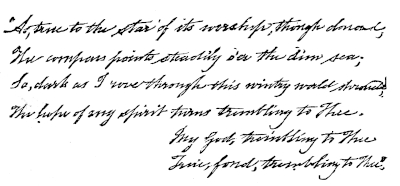 "As, true to the star of its worship, though clouded,
The compass points steadily o'er the dim sea,
So, dark as I rove through this wintry world shrouded,
The hope of my spirit turns trembling to Thee.
My God, trembling to Thee
True, fond, trembling to Thee".